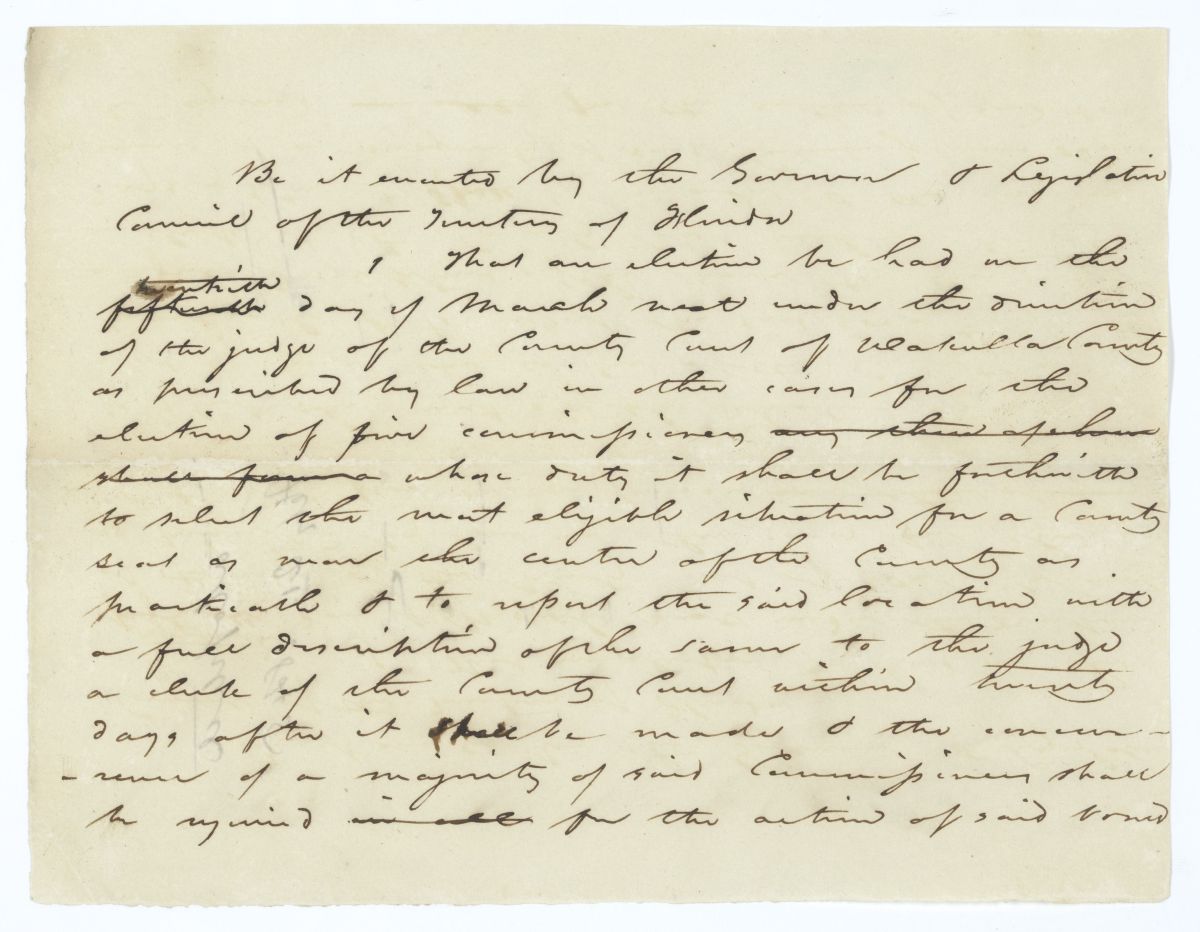 Be it enacted by the Governor & Legislative
Council of the Territory of Florida
1 That an election be had on the
twentieth
fifteenth day of March next under the direction
of the judge of the County Court of Wakulla County
as prescribed by law in other cases for the
election of five commissioners any three of whom
shall form a whose duty it shall be forthwith
to select the most eligible situation for a County
seat as near the centre of the County as
practicable & to report the said location with
a full description of the same to the judge
or clerk of the County Court within twenty
days after it shall be made & the concur-
-rence of a majority of said Commissioners shall
be required in all for the action of said board